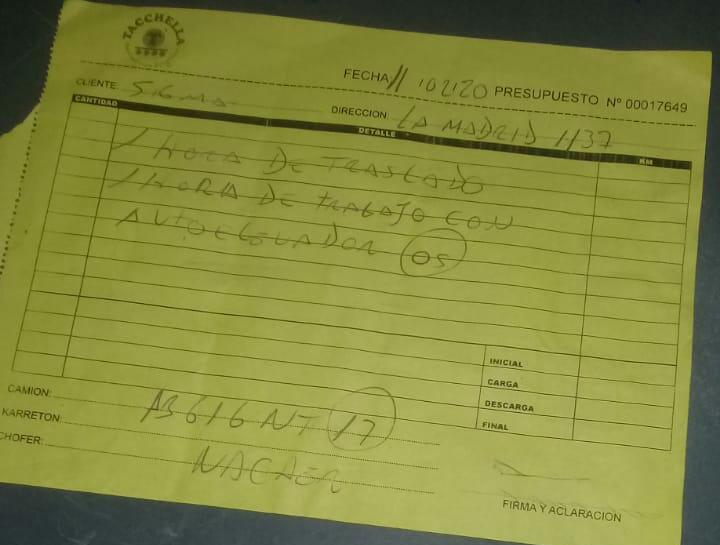 TACCHELLA
FECHA 11/02/20 PRESUPUESTO Nº 00017649
CLIENTE: SIGMA DIRECCION: LA MADRID 1137
CANTIDAD DETALLE KM
1 HORA DE TRASLADO
1 HORA DE TRABAJO CON
AUTOELEVADOR 05
INICIAL
CARGA
DESCARGA
FINAL
CAMION: AB616NT 17
KARRETON:
CHOFER:
FIRMA Y ACLARACION